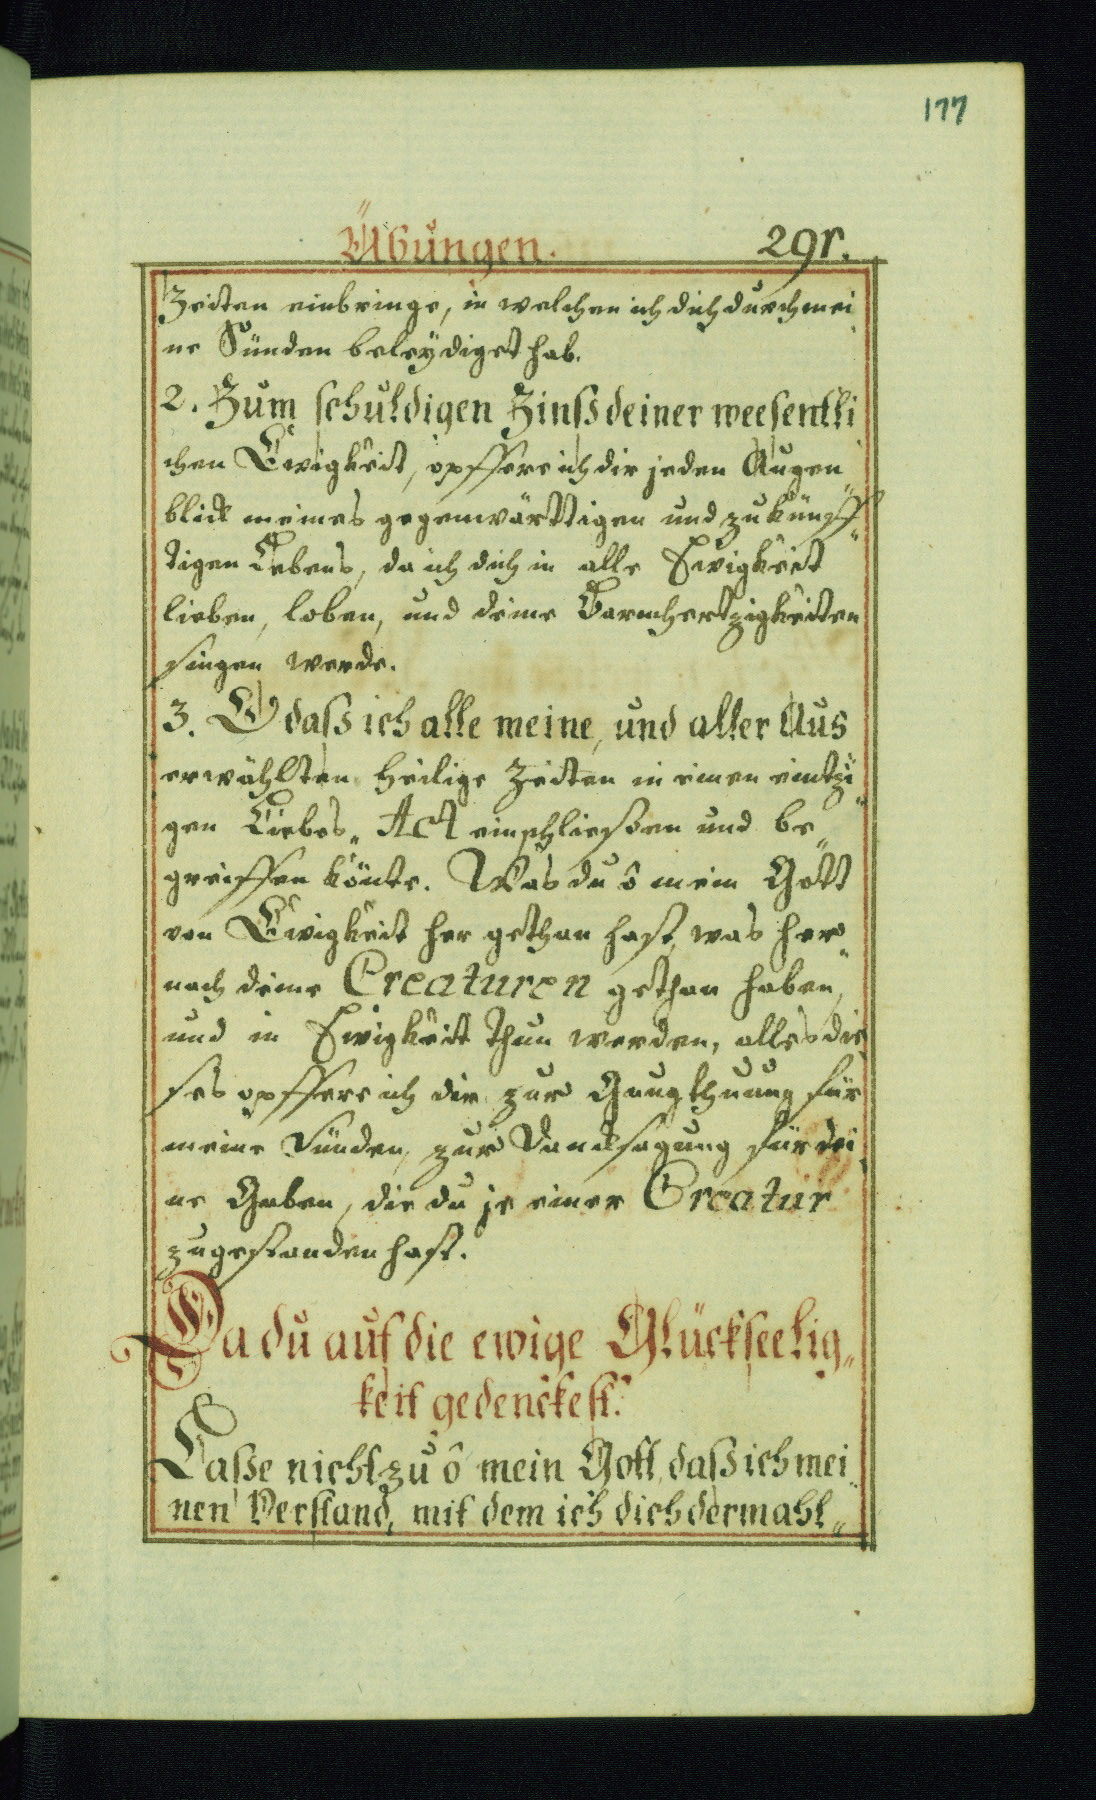 177
Übungen. 291.
Zeiten einbringe, in welchen ich dich durch mei
ne Sünden beleydiget hab.
2. Zum schuldigen Zinß deiner weesentli
chen Ewigkeit, opffere ich dir jeden Augen„
blick meines gegenwärttigen und zukünff„
tigen Lebens, da ich dich in alle Ewigkeit
lieben, loben, und deine Barmhertzigkeiten
singen werde.
3. O daß ich alle meine, und aller Aus
erwählten heilige Zeiten in einen eintzi„
gen Liebes„ Act einschließen und be„
greiffen könte. Was du ô mein Gott
von Ewigkeit her gethan hast, was her„
nach deine Creaturen gethan haben,
und in Ewigkeit thun werden, alles die
ses opffere ich dir zur Gnugthuung für
meine Sünden, zur Dancksagung für dei„
ne Gaben, die du je einer Creatur
zugestanden hast.
Da du auf die ewige Glückseelig„
keit gedenckest.
Laße nicht zu ô mein Gott, daß ich mei„
nen Verstand, mit dem ich dich dermahl„